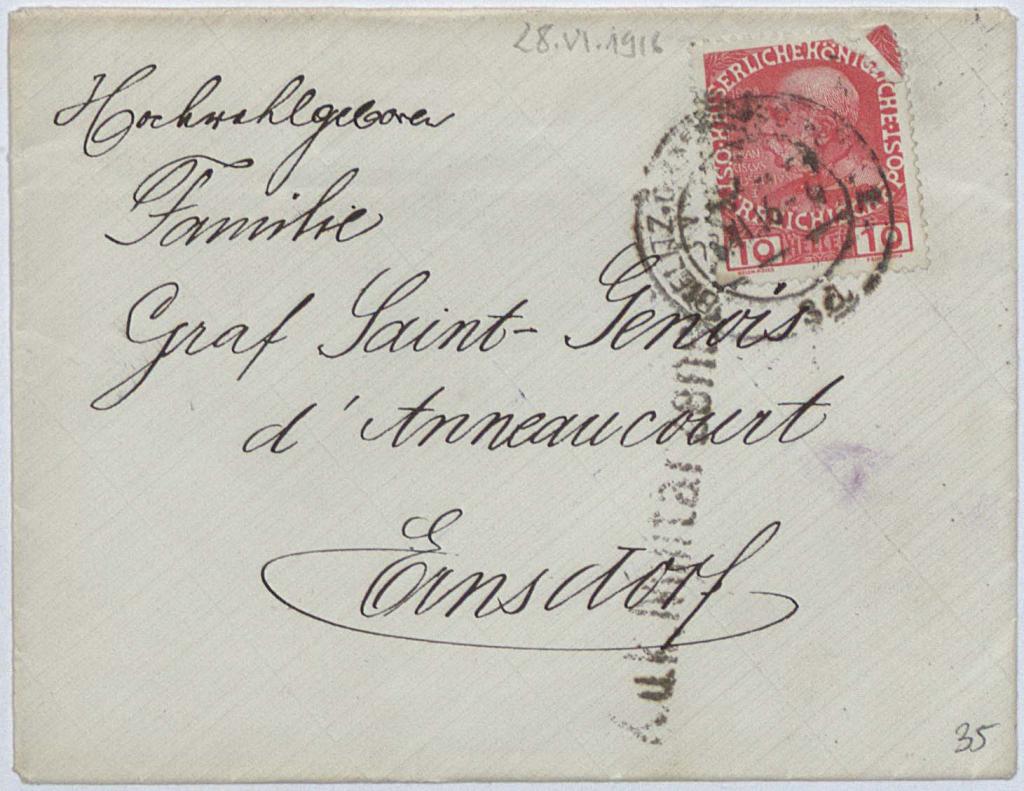 28.VI.1916
Hochwohlgeboren
Familie
Graf Saint-Genois
d'Anneaucourt
Ernsdorf
KAISERLICHE KÖNIGLICHE POST
10 HELLER 10
K.u.k. Militärzensur
35